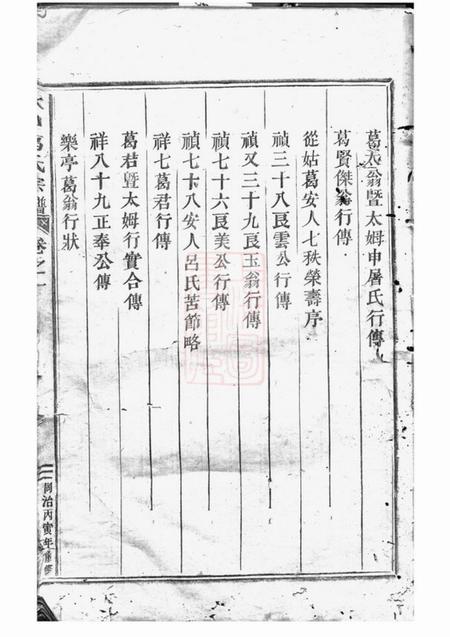 葛太翁暨太姆申屠氏行傳
葛賢傑翁行傳
從姑葛安人七秩榮壽序
禎三十八良雲公行傳
禎又三十九良玉翁行傳
禎七十六良美公行傳
禎七十八安人呂氏苦節略
祥七葛君行傳
葛君暨太姆行實合傳
祥八十九正奉公傳
樂亭葛翁行狀
葛氏宗譜
卷之一
同治丙寅年重修